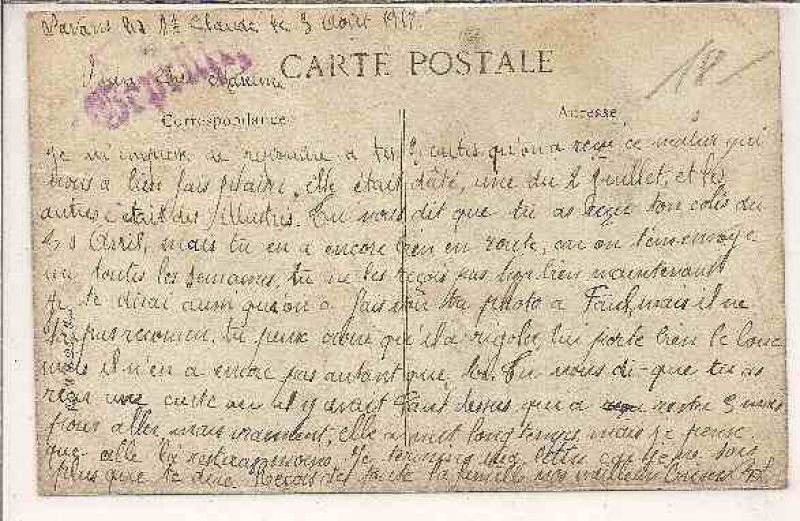 Lavans les St Claude le 3 Août 1917
Bien cher Maxime
CARTE POSTALE
18
Correspondance
Adresse
Je m'empresse de répondre a tes 2 cartes qu'on a reçue ce matin qui
nous a bien fais plaisir, elle était daté, une du 2 Juillet, et les
autres c'était des illustrés. Tu nous dit que tu as reçu ton colis du
Avril, mais tu en a encore bien en route, car on t'en envoye
un toutes les semaines, tu ne les reçois pas bien maintenant
Je te dirai aussi qu'on a fais voir ta photo a Paul, mais il ne
t'a pas reconnu, tu peux croire qu'il a rigoler, lui porte bien le bouc
mais il n'en a encore pas autant que toi. Tu nous di-que tu as
reçu une carte ou il y avait dessus qui a restée 3 mois
pour aller, mais vraiment, elle a mit longtemps, mais je pense
que celle la restera moins. Je termine ma lettre car je ne sais
plus que te dire. Reçois de toute la famille nos meilleurs baisers